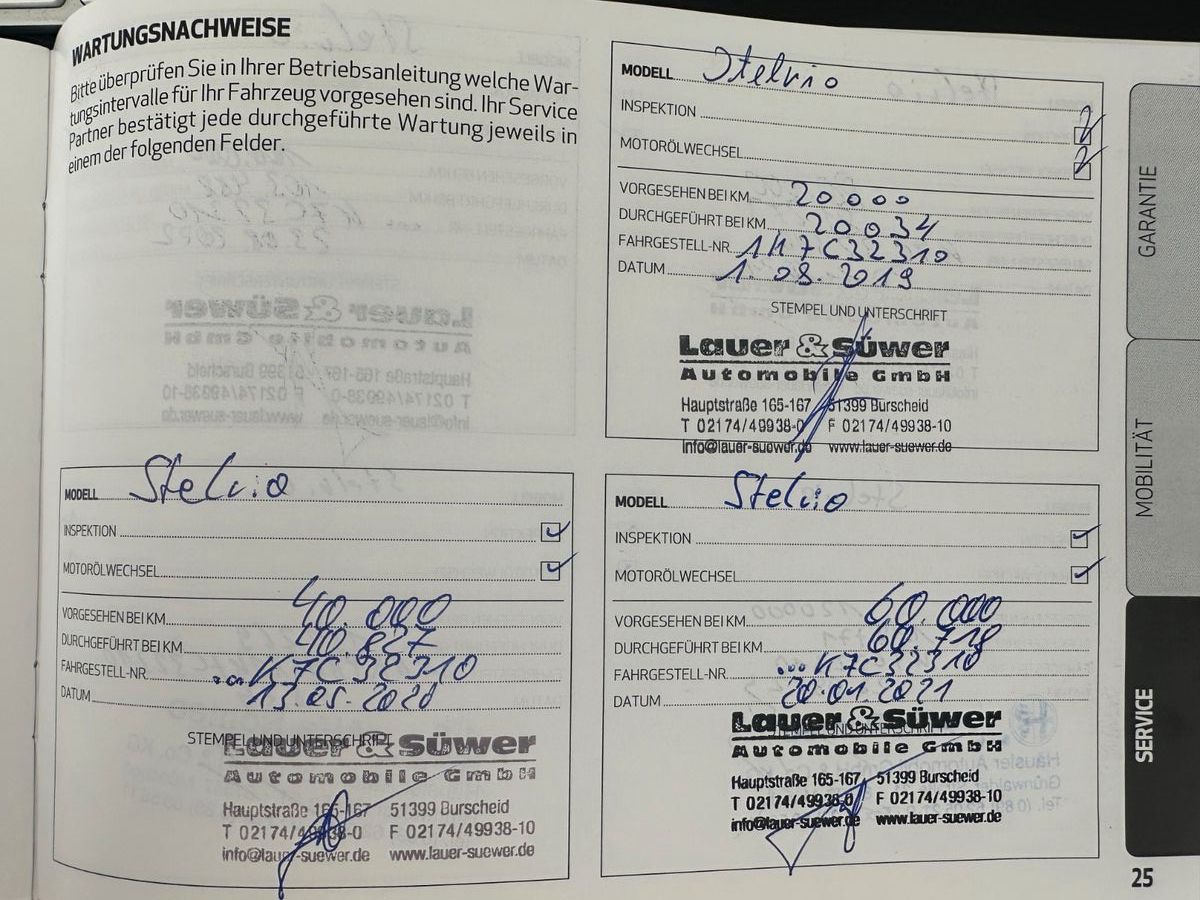 WARTUNGSNACHWEISE
Bitte überprüfen Sie in Ihrer Betriebsanleitung welche War-
tungsintervalle für Ihr Fahrzeug vorgesehen sind. Ihr Service
Partner bestätigt jede durchgeführte Wartung jeweils in
einem der folgenden Felder.
MODELL Stelvio
INSPEKTION
MOTORÖLWECHSEL
VORGESEHEN BEI KM 20000
DURCHGEFÜHRT BEI KM 20034
FAHRGESTELL-NR. K7C32310
DATUM 1.08.2019
STEMPEL UND UNTERSCHRIFT
Lauer & Süwer
Automobile GmbH
Hauptstraße 165-167 51399 Burscheid
T 02174/49938-0 F 02174/49938-10
info@lauer-suewer.de www.lauer-suewer.de
MODELL Stelvio
INSPEKTION
MOTORÖLWECHSEL
VORGESEHEN BEI KM 40.000
DURCHGEFÜHRT BEI KM 40.827
FAHRGESTELL-NR. ...K7C32310
DATUM 13.05.2020
STEMPEL UND UNTERSCHRIFT
Lauer & Süwer
Automobile GmbH
Hauptstraße 165-167 51399 Burscheid
T 02174/49938-0 F 02174/49938-10
info@lauer-suewer.de www.lauer-suewer.de
MODELL Stelvio
INSPEKTION
MOTORÖLWECHSEL
VORGESEHEN BEI KM 60.000
DURCHGEFÜHRT BEI KM 60.719
FAHRGESTELL-NR. ...K7C32310
DATUM 20.01.2021
STEMPEL UND UNTERSCHRIFT
Lauer & Süwer
Automobile GmbH
Hauptstraße 165-167 51399 Burscheid
T 02174/49938-0 F 02174/49938-10
info@lauer-suewer.de www.lauer-suewer.de
GARANTIE
MOBILITÄT
SERVICE
25